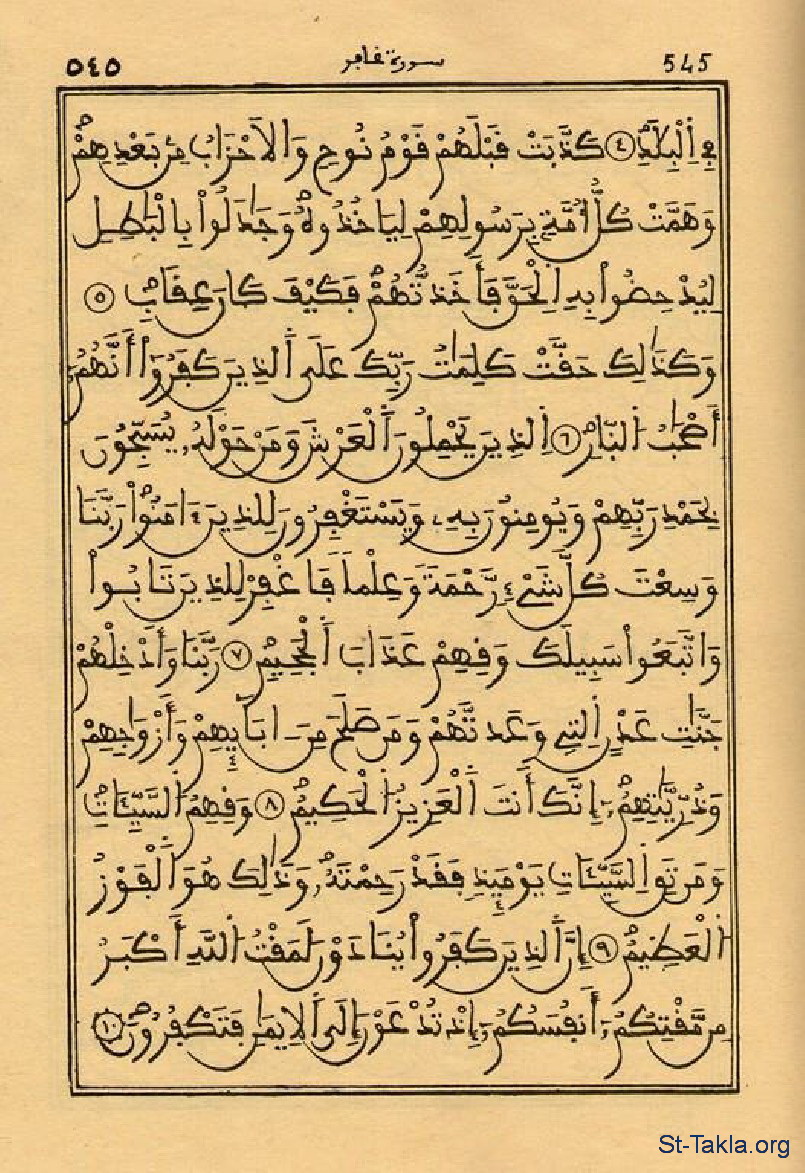 ٥٤٥ سورة غافر 545
فِے اِ۬لْبِلَٰدِۖ ٤ كَذَّبَتْ قَبْلَهُمْ قَوْمُ نُوحٖ وَالَاحْزَابُ مِنۢ بَعْدِهِمْۖ
وَهَمَّتْ كُلُّ أُمَّةِۢ بِرَسُولِهِمْ لِيَاخُذُوهُۖ وَجَٰدَلُواْ بِالْبَٰطِلِ
لِيُدْحِضُواْ بِهِ اِ۬لْحَقَّ فَأَخَذتُّهُمْۖ فَكَيْفَ كَانَ عِقَابِۖ ٥
وَكَذَٰلِكَ حَقَّتْ كَلِمَٰتُ رَبِّكَ عَلَى اَ۬لذِينَ كَفَرُوٓاْ أَنَّهُمُۥٓ
أَصْحَٰبُ اُ۬لنّ۪ارِۖ ٦ اِ۬لذِينَ يَحْمِلُونَ اَ۬لْعَرْشَ وَمَنْ حَوْلَهُۥ يُسَبِّحُونَ
بِحَمْدِ رَبِّهِمْ وَيُومِنُونَ بِهِۦ وَيَسْتَغْفِرُونَ لِلذِينَ ءَامَنُواْۖ رَبَّنَا
وَسِعْتَ كُلَّ شَےْءٖ رَّحْمَةٗ وَعِلْماٗ فَاغْفِرْ لِلذِينَ تَابُواْ
وَاتَّبَعُواْ سَبِيلَكَ وَقِهِمْ عَذَابَ اَ۬لْجَحِيمِۖ ٧ رَبَّنَا وَأَدْخِلْهُمْ
جَنَّٰتِ عَدْنٍ اِ۬لتِے وَعَدتَّهُمْ وَمَن صَلَحَ مِنَ اٰبَآئِهِمْ وَأَزْوَٰجِهِمْ
وَذُرِّيَّٰتِهِمُۥٓۖ إِنَّكَ أَنتَ اَ۬لْعَزِيزُ اُ۬لْحَكِيمُۖ ٨ وَقِهِمُ اُ۬لسَّيِّـَٔاتِۖ
وَمَن تَقِ اِ۬لسَّيِّـَٔاتِ يَوْمَئِذٖ فَقَدْ رَحِمْتَهُۥۖ وَذَٰلِكَ هُوَ اَ۬لْفَوْزُ
اُ۬لْعَظِيمُۖ ٩ إِنَّ اَ۬لذِينَ كَفَرُواْ يُنَادَوْنَ لَمَقْتُ اُ۬للَّهِ أَكْبَرُ
مِن مَّقْتِكُمُۥٓ أَنفُسَكُمُۥٓ إِذْ تُدْعَوْنَ إِلَى اَ۬لِايمَٰنِ فَتَكْفُرُونَۖ ١٠
St-Takla.org